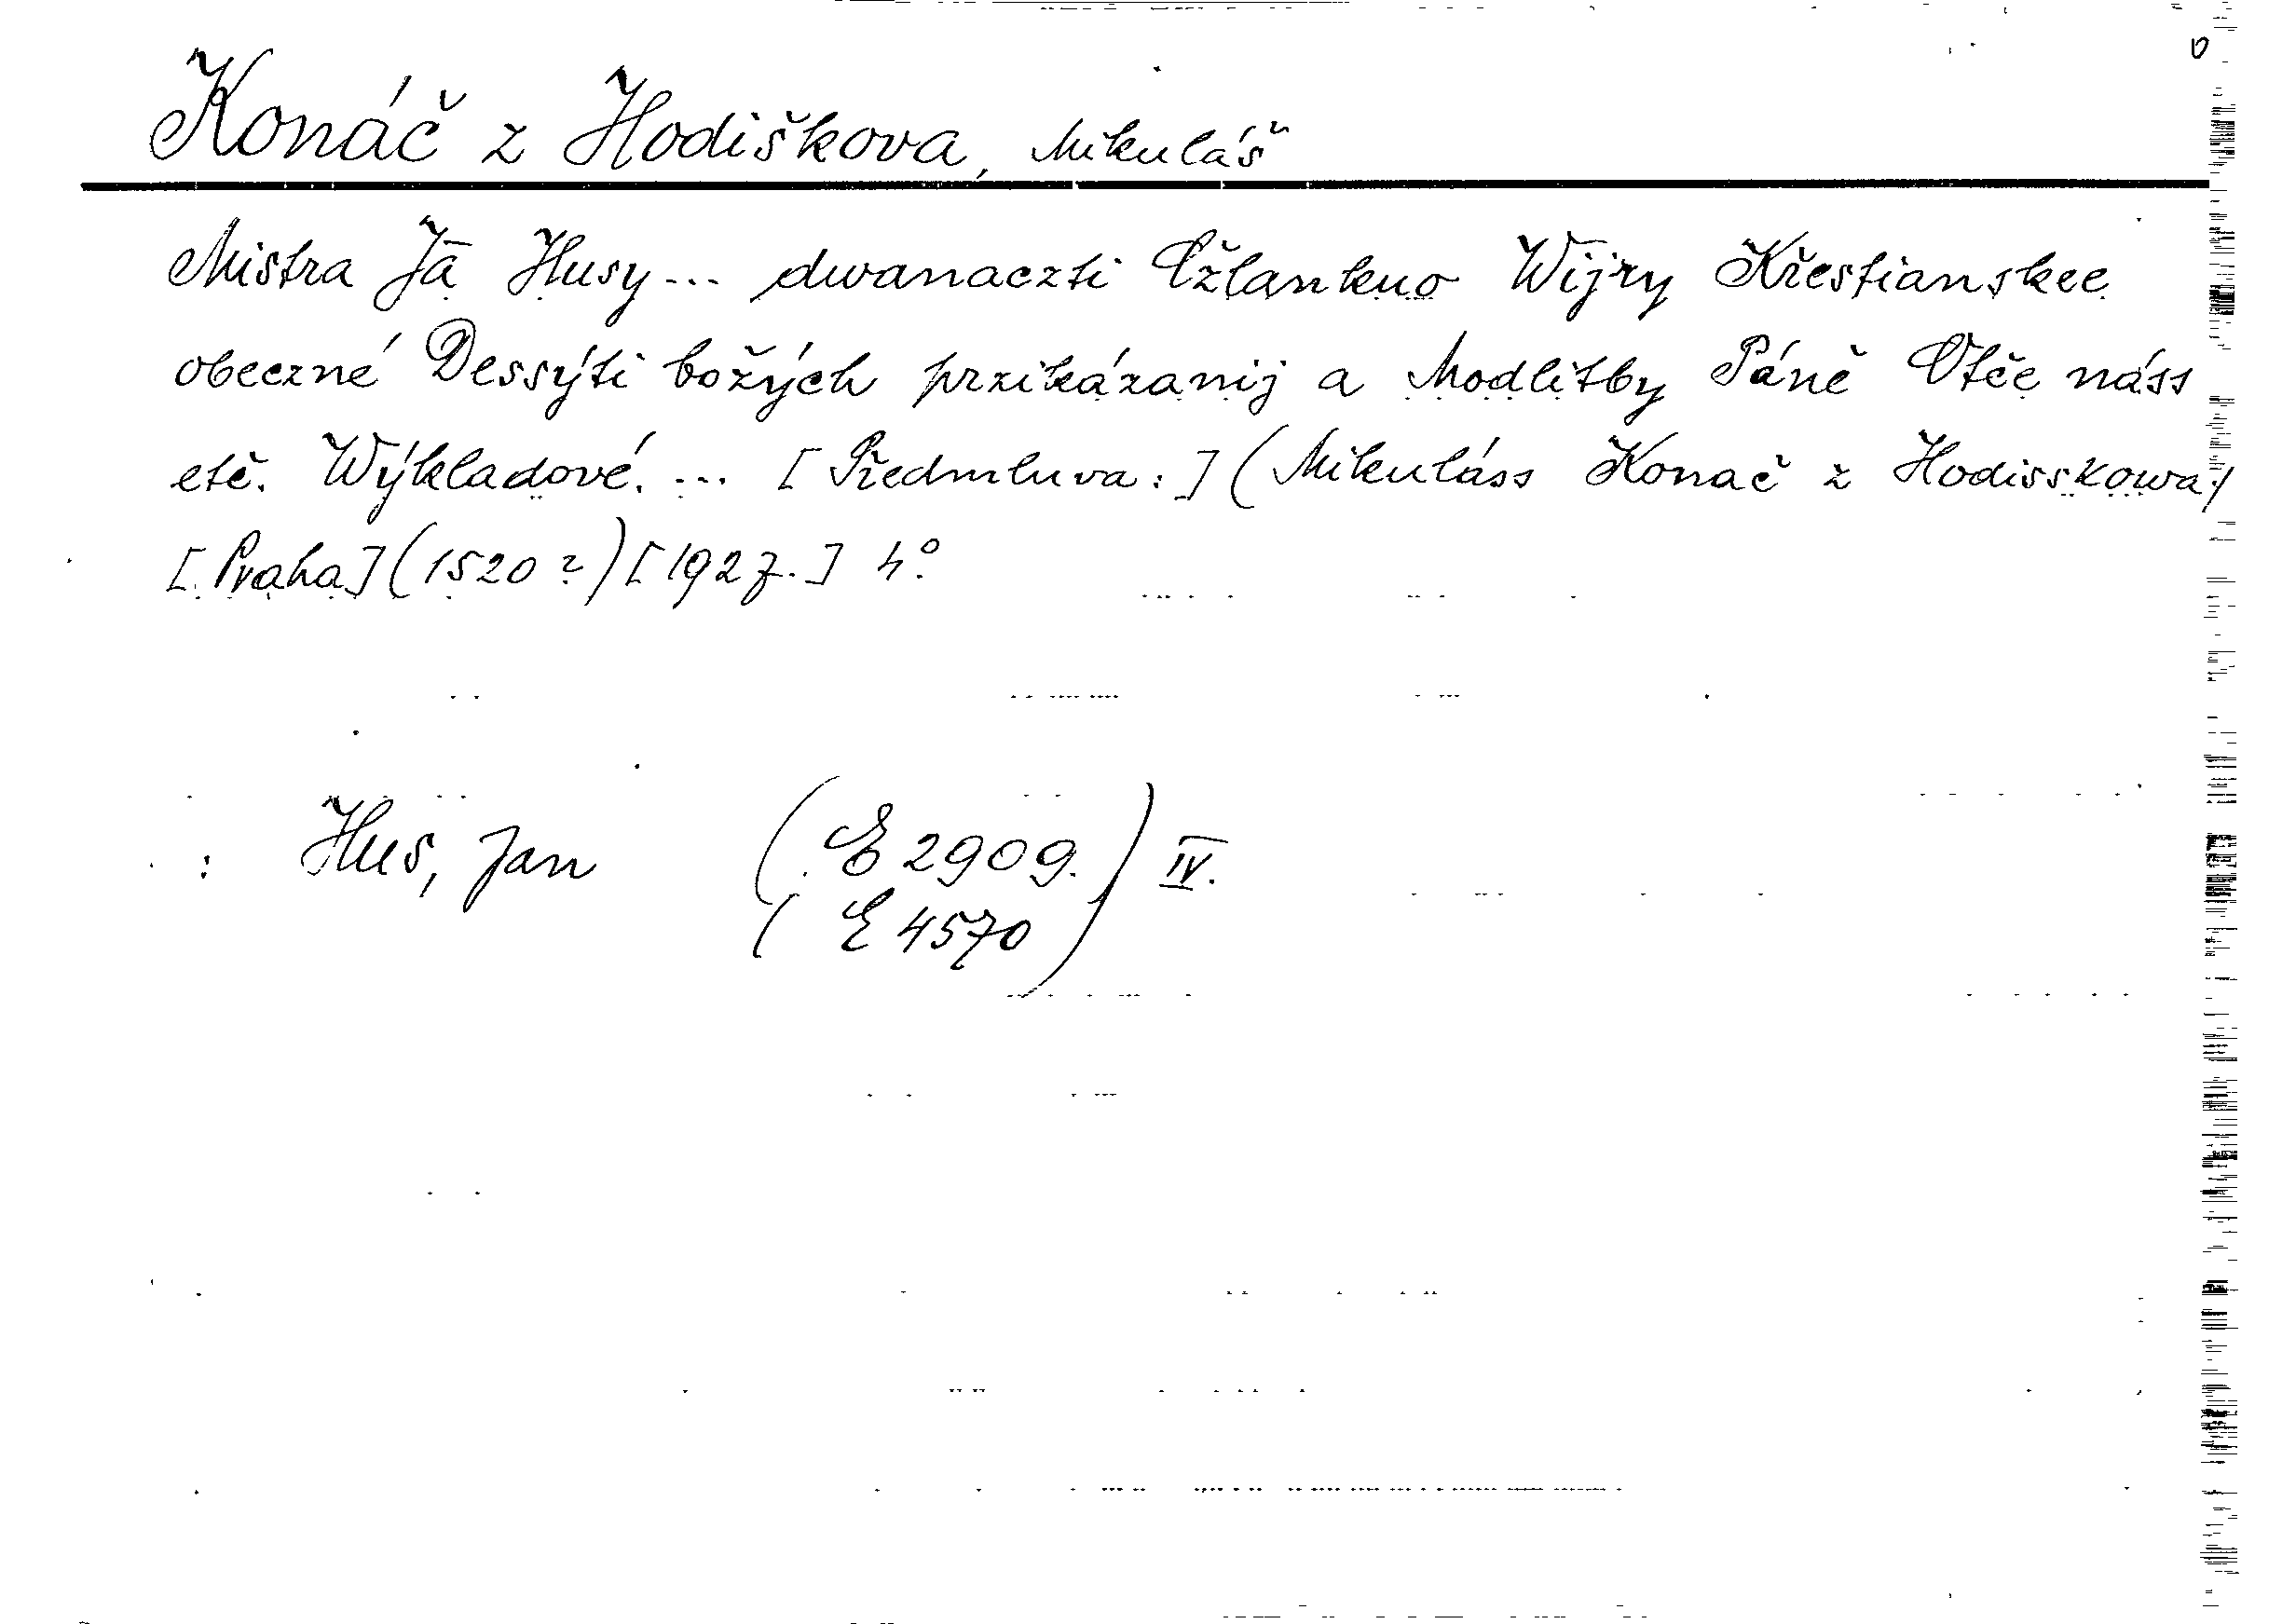 Konáč z Hodiškova, Mikuláš
Mistra Jā Husy... dwanaczti Cžlankuo Wijry Křestianskee
obeczné Dessýti božých przikázanij a Modlitby Páně Otče náss
etč. Wýkladové. ... [Předmluva:] (Mikuláss Konač z Hodisskowa.)
[Praha] (1520?) [192 f.] 4°.
: Hus, Jan (E 2909.) IV.
( E 4570 )